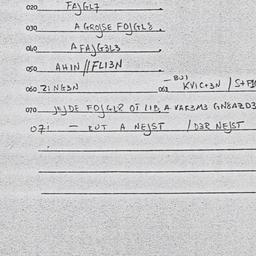 020 FAJGL7
030 A GROJSE FOJGL8.
040 A FAJG3L3
050 AHIN // FLI3N
— BUJ
060 ZING3N 061 KVIC+3N / S+F
070 JEJDE FOJGL8 OJ LIB A VAR3M3 GN8AZD3
071 — ZUT A NEJST / D3R NEJST